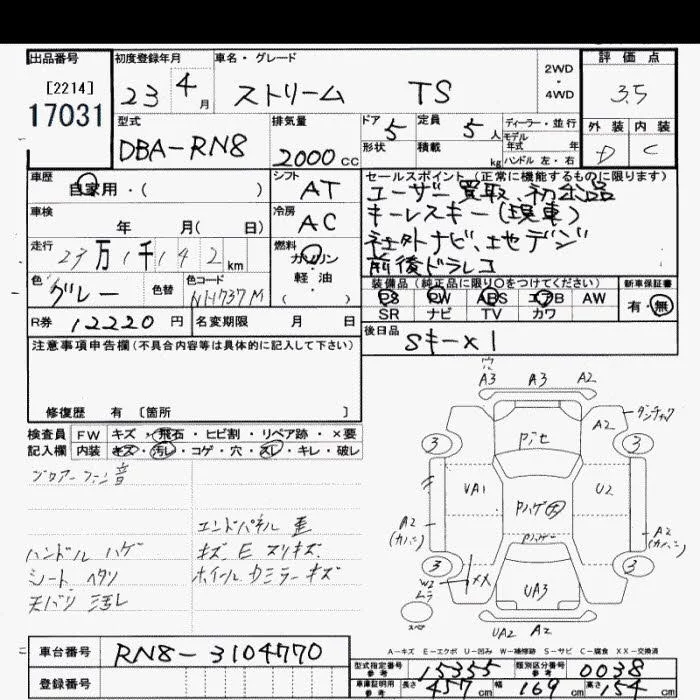 出品番号
[2214]
17031
初度登録年月
23 4月
車名・グレード
ストリーム TS
2WD
・
4WD
評価点
3.5
外装 内装
D C
型式
DBA-RN8
排気量
2000cc
ドア 5
形状
定員 5人
積載 kg
ディーラー・並行
モデル
年式 年
ハンドル 左・右
車歴
自家用・( )
シフト
AT
セールスポイント(正常に機能するものに限ります)
ユーザー買取、初出品
キーレスキー(現車)
社外ナビ、地デジ
前後ドラレコ
車検
年 月( 日)
冷房
AC
走行
23万1千142km
燃料
ガソリン
軽油
( )
色
グレー
色替
色コード
NH737M
装備品(純正品に限り○をつけてください)
PS PW ABS エアB AW
SR ナビ TV カワ
新車保証書
有・無
R券 12220円
名変期限 月 日
後日品
Sキー×1
注意事項申告欄(不具合内容等は具体的に記入して下さい)
修復歴 有 [箇所 ]
検査員
記入欄
FW キズ・飛石・ヒビ割・リペア跡・×要
内装 キズ・汚レ・コゲ・穴・スレ・キレ・破レ
ブロアーファン音
エンドパネル 歪
ハンドル ハゲ
キズ E スリキズ
シート ヘタリ
ホイール カミラーキズ
天バリ 汚レ
穴
A3 A3 A2
A2
3 3
pit
UA1 Pハゲ大 U2
A2
(カバー)
A2
(カバー)
3 3
W2
ムラ
XX
UA3
スペア
UA2 A2
A-キズ E-エクボ U-凹み W-補修跡 S-サビ C-腐食 XX-交換済
車台番号
RN8-3104770
登録番号
型式指定番号
参考
15355
類別区分番号
参考
0038
車庫証明用
参考
長さ 457cm 幅 169cm 高さ 154cm